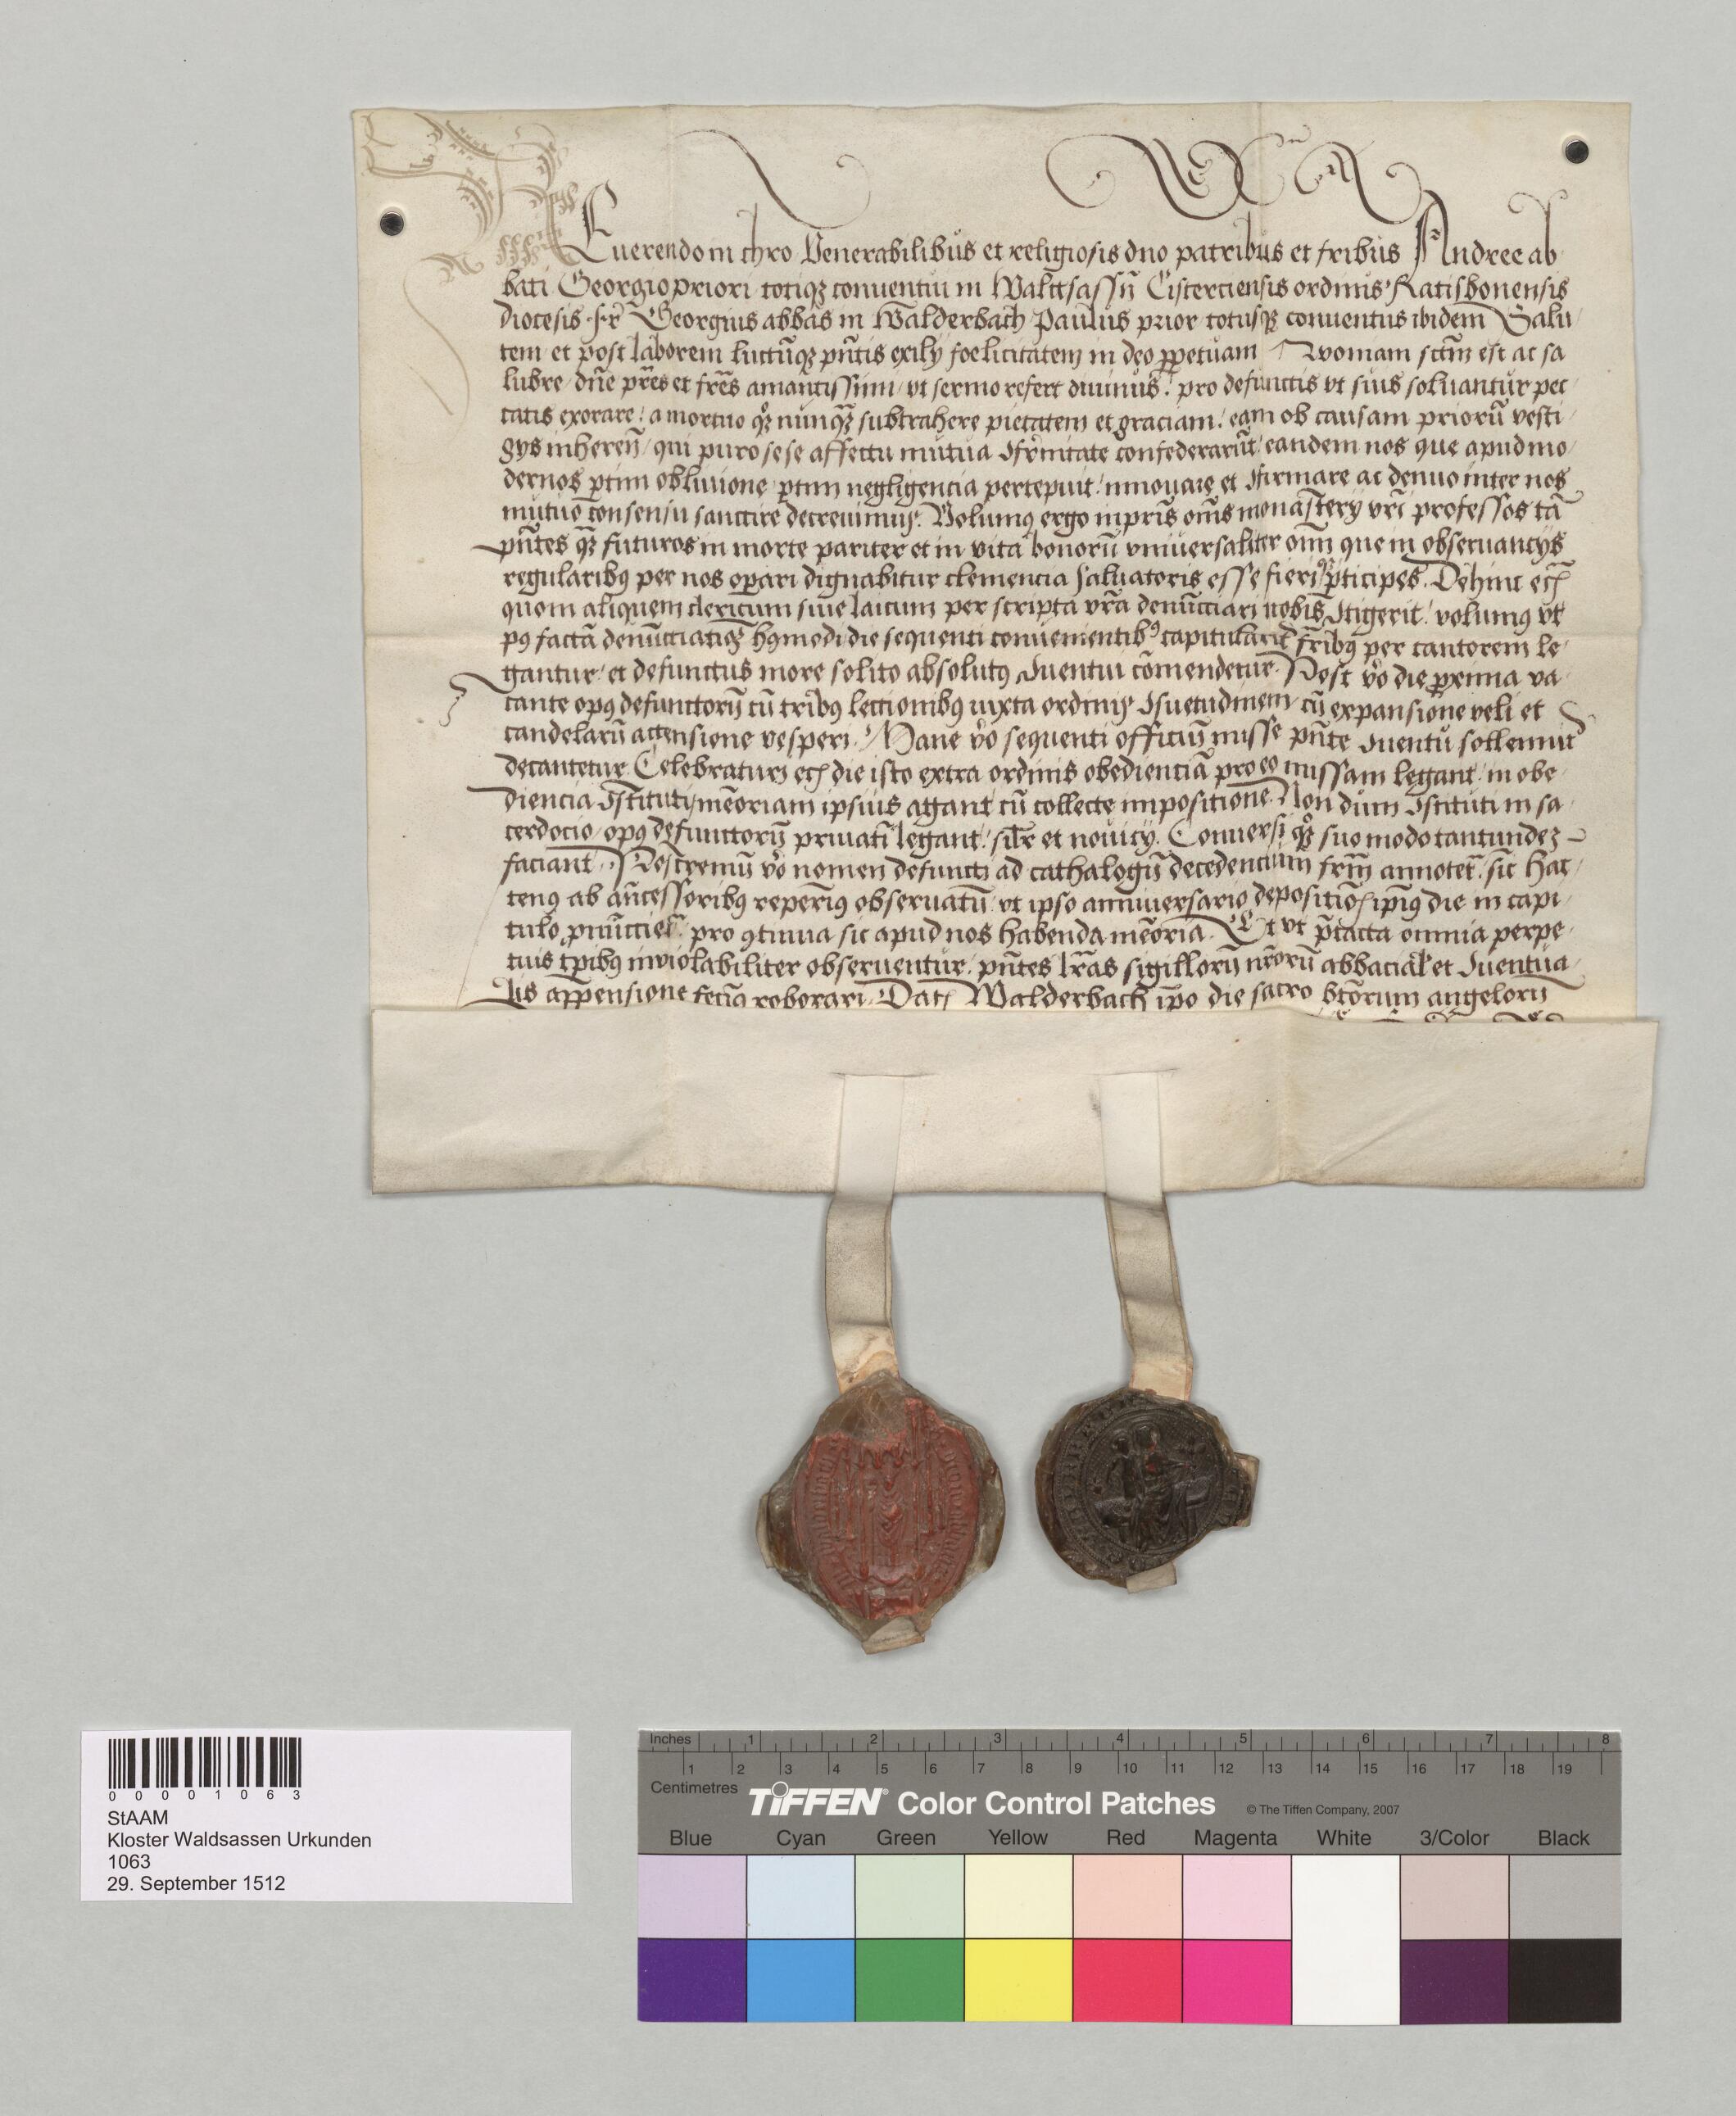 Reuerendo in chro Venerabilibus et religiosis dno patribus et fribus Andree ab
bati Georgio priori totiqȝ conuentui in Waltsassn̄ Cisterciensis ordinis Ratisbonensis
diocesis fr̄ Georgius abbas in Walderbach Paulus prior totusqȝ conuentus ibidem Salu
tem et post laborem luctūqȝ pn̄tis exilij foelicitatem in deo ꝑpetuam Quoniam sctm̄ est ac sa
lubre / dn̄e pr̄es et fr̄es amantissimi / vt sermo refert diuinus / pro defunctis vt suis soluantur pec
catis exorare / a mortuo qꝫ nunqꝫ subtrahere pietatem et graciam / eam ob causam priorū vesti
gijs inheren̄ / qui puro sese affectu mutua ꝯfr̄nitate confederarūt / eandem nos que apud mo
dernos ꝑtim obliuione ꝑtim negligencia pertepuit / innouare et ꝯfirmare ac denuo inter nos
mutuo consensu sanctire decreuimus. Volumꝰ ergo inpr̄is om̄s monasterij vr̄i professos tā
pn̄tes qꝫ futuros in morte pariter et in vita bonorū vniuersaliter oīm que in obseruancijs
regularibꝰ per nos oꝑari dignabitur clemencia saluatoris esse fieriqꝫ ꝑticipes. Dehinc
quom aliquem clericum siue laicum per scripta vr̄a denūcciari nobis ꝯtigerit / volumꝰ vt
pꝰ factā denūcciatioȝ hꝰmodi die sequenti conuenientibꝰ capitularit fr̄ibꝰ per cantorem le
gantur / et defunctus more solito absolutꝰ ꝯuentui cōmendetur. Post vo die ꝓxima va
cante opꝰ defunctorū cū tribꝰ lectionibꝰ iuxta ordinis ꝯsuetudinem / cū expansione veli et
candelarū accensione vesperi. Mane vo sequenti officiū misse pn̄te ꝯuentu sollemnit
decantetur. Celebraturi die isto extra ordinis obedienciā pro eo missam legant / in obe
diencia ꝯstituti mēoriam ipsius agant cū collecte impositione. Non dum ꝯstituti in sa
cerdocio / opꝰ defunctorū priuatī legant / silr̄ et nouicij. Conuersi qꝫ suo modo tantundeȝ
faciant. Postremū vo nomen defuncti ad cathalogū decedencium fr̄m annotet / sic hac
tenꝰ ab an̄cessoribꝰ reperimꝰ obseruatū / vt ipso anniuersario depositiōis ipīꝰ die in capi
tulo ꝓnūcciet̄ / pro ꝯtinua sic apud nos habenda mēoria. Et vt p̄tacta omnia perpe
tuis tꝑibꝰ inuiolabiliter obseruentur / pn̄tes lr̄as sigillorū nr̄orū abbacial et ꝯuentua
lis appensione fecimꝰ roborari. Dat Walderbach ip̄o die sacro btōrum angelorū
0 0 0 0 1 0 6 3
StAAM
Kloster Waldsassen Urkunden
1063
29. September 1512
Inches 1 2 3 4 5 6 7 8
1 2 3 4 5 6 7 8 9 10 11 12 13 14 15 16 17 18 19
Centimetres
TIFFEN® Color Control Patches © The Tiffen Company, 2007
Blue Cyan Green Yellow Red Magenta White 3/Color Black